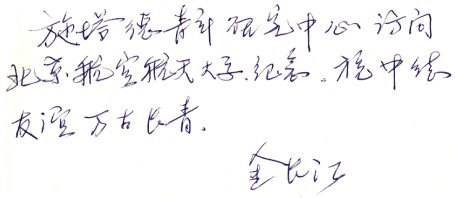 施塔德青年研究中心访问
北京航空航天大学.纪念。祝中德
友谊万古长青。
金长江